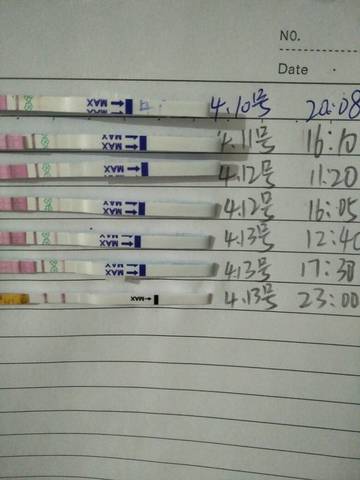 NO.
Date
MAX 4.10号 20:08
MAX MAX 4.11号 16:10
MAX MAX 4.12号 11:20
MAX MAX 4.12号 16:05
MAX MAX 4.13号 12:40
MAX MAX 4.13号 17:30
MAX 4.13号 23:00